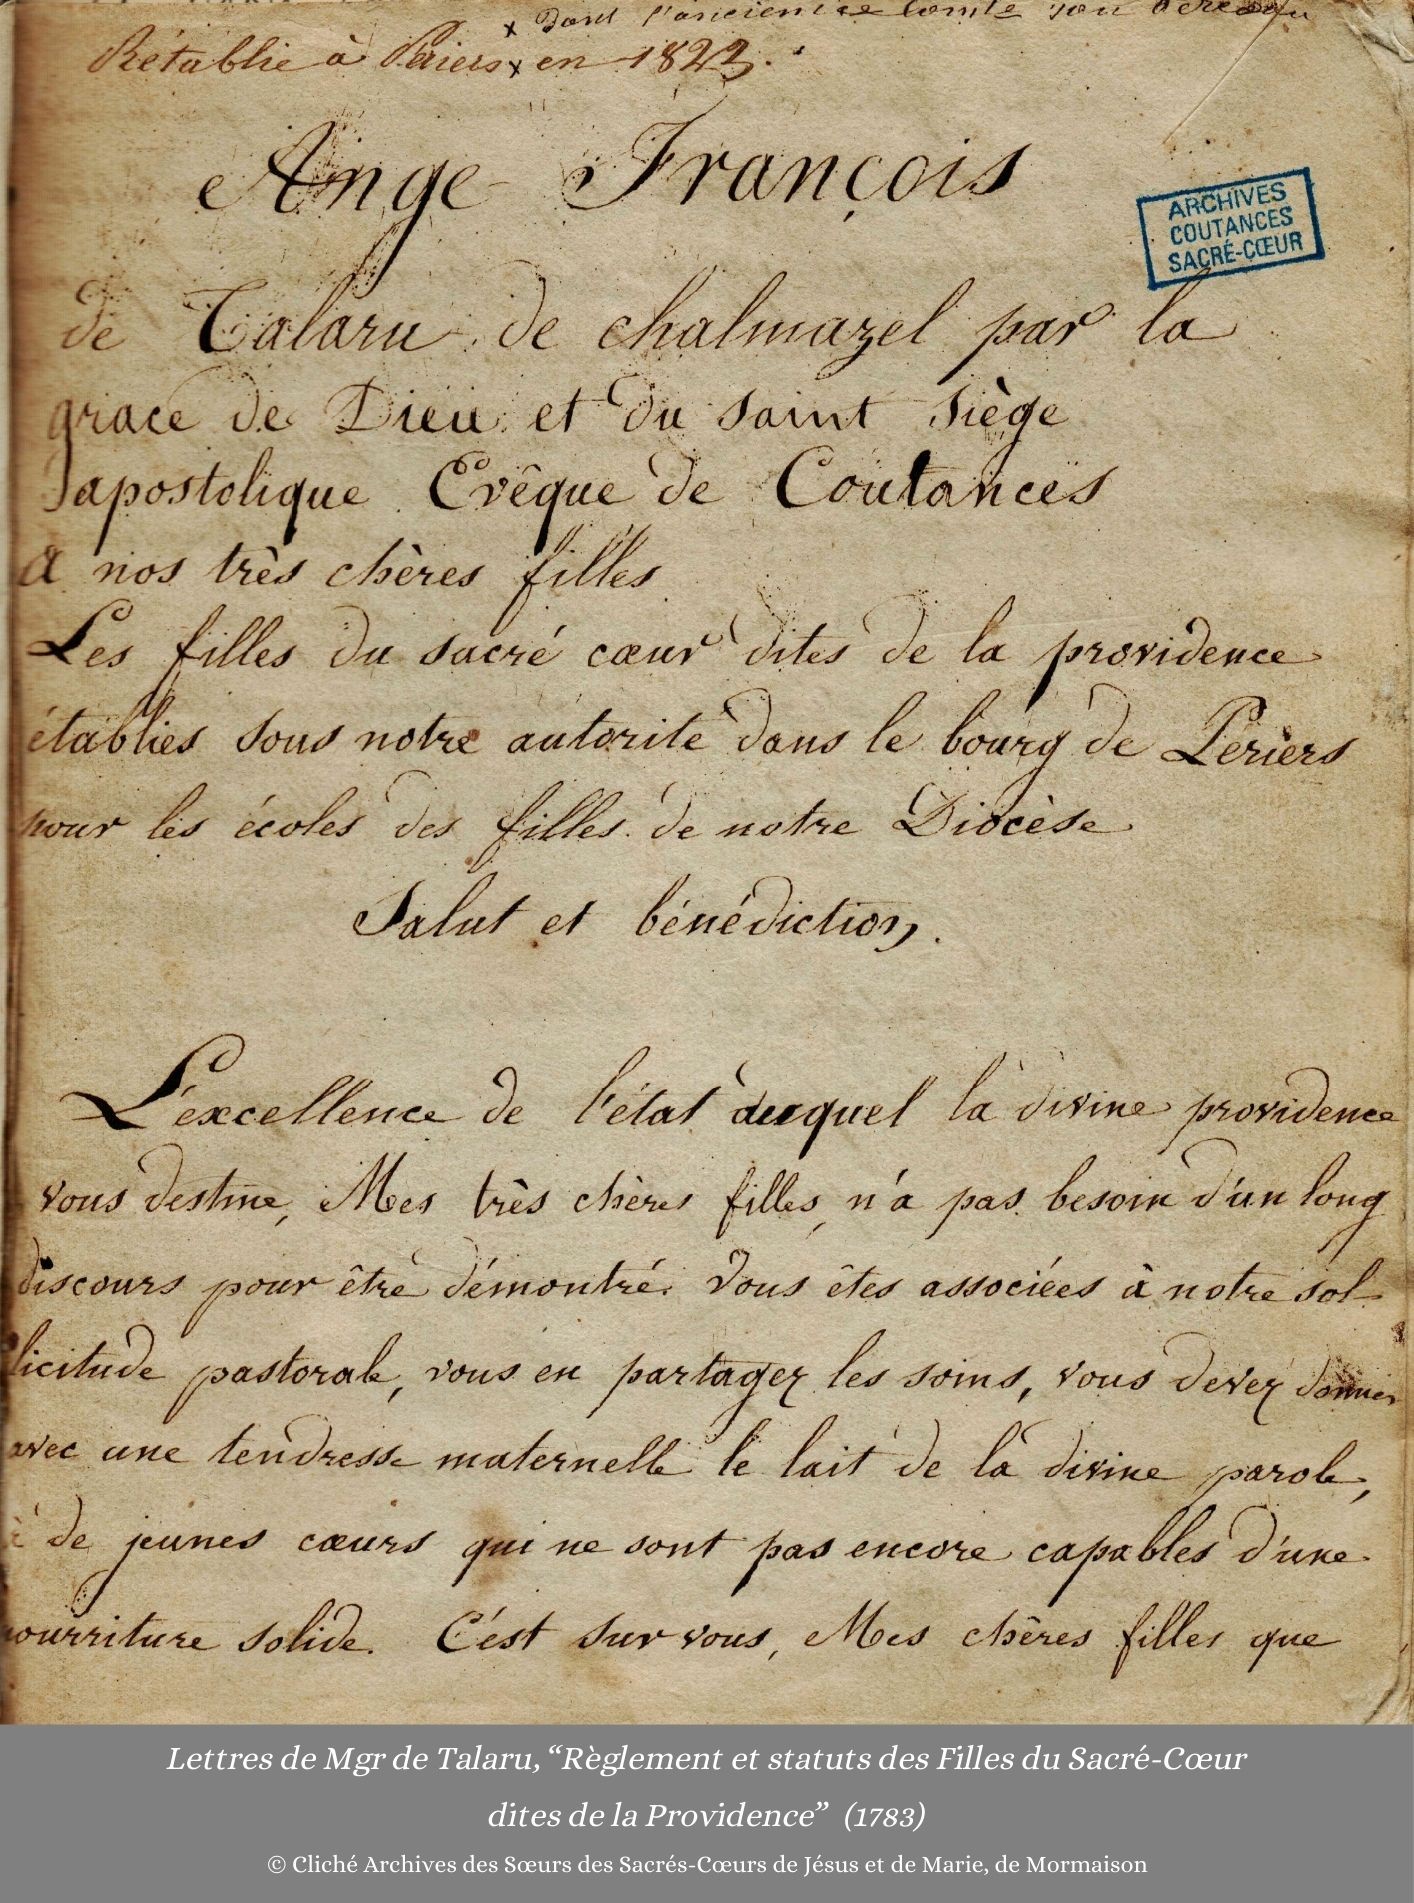 x Dont l'ancienne comte
Rétablie à Périers x en 1822.
Ange François
ARCHIVES
COUTANCES
SACRÉ-CŒUR
de Talaru de chalmazel par la
grace de Dieu et du saint Siège
apostolique Evêque de Coutances
A nos très chères filles
Les filles du sacré cœur dites de la providence
établies sous notre autorité dans le bourg de Périers
pour les écoles des filles de notre Diocèse
Salut et bénédiction.
L'excellence de l'état auquel la divine providence
vous destine, Mes très chères filles, n'a pas besoin d'un long
discours pour être démontré. Vous êtes associées à notre sol-
licitude pastorale, vous en partagez les soins, vous devez donner
avec une tendresse maternelle le lait de la divine parole,
à de jeunes cœurs qui ne sont pas encore capables d'une
nourriture solide. C'est sur vous, Mes chères filles que
Lettres de Mgr de Talaru, “Règlement et statuts des Filles du Sacré-Cœur
dites de la Providence” (1783)
© Cliché Archives des Sœurs des Sacrés-Cœurs de Jésus et de Marie, de Mormaison